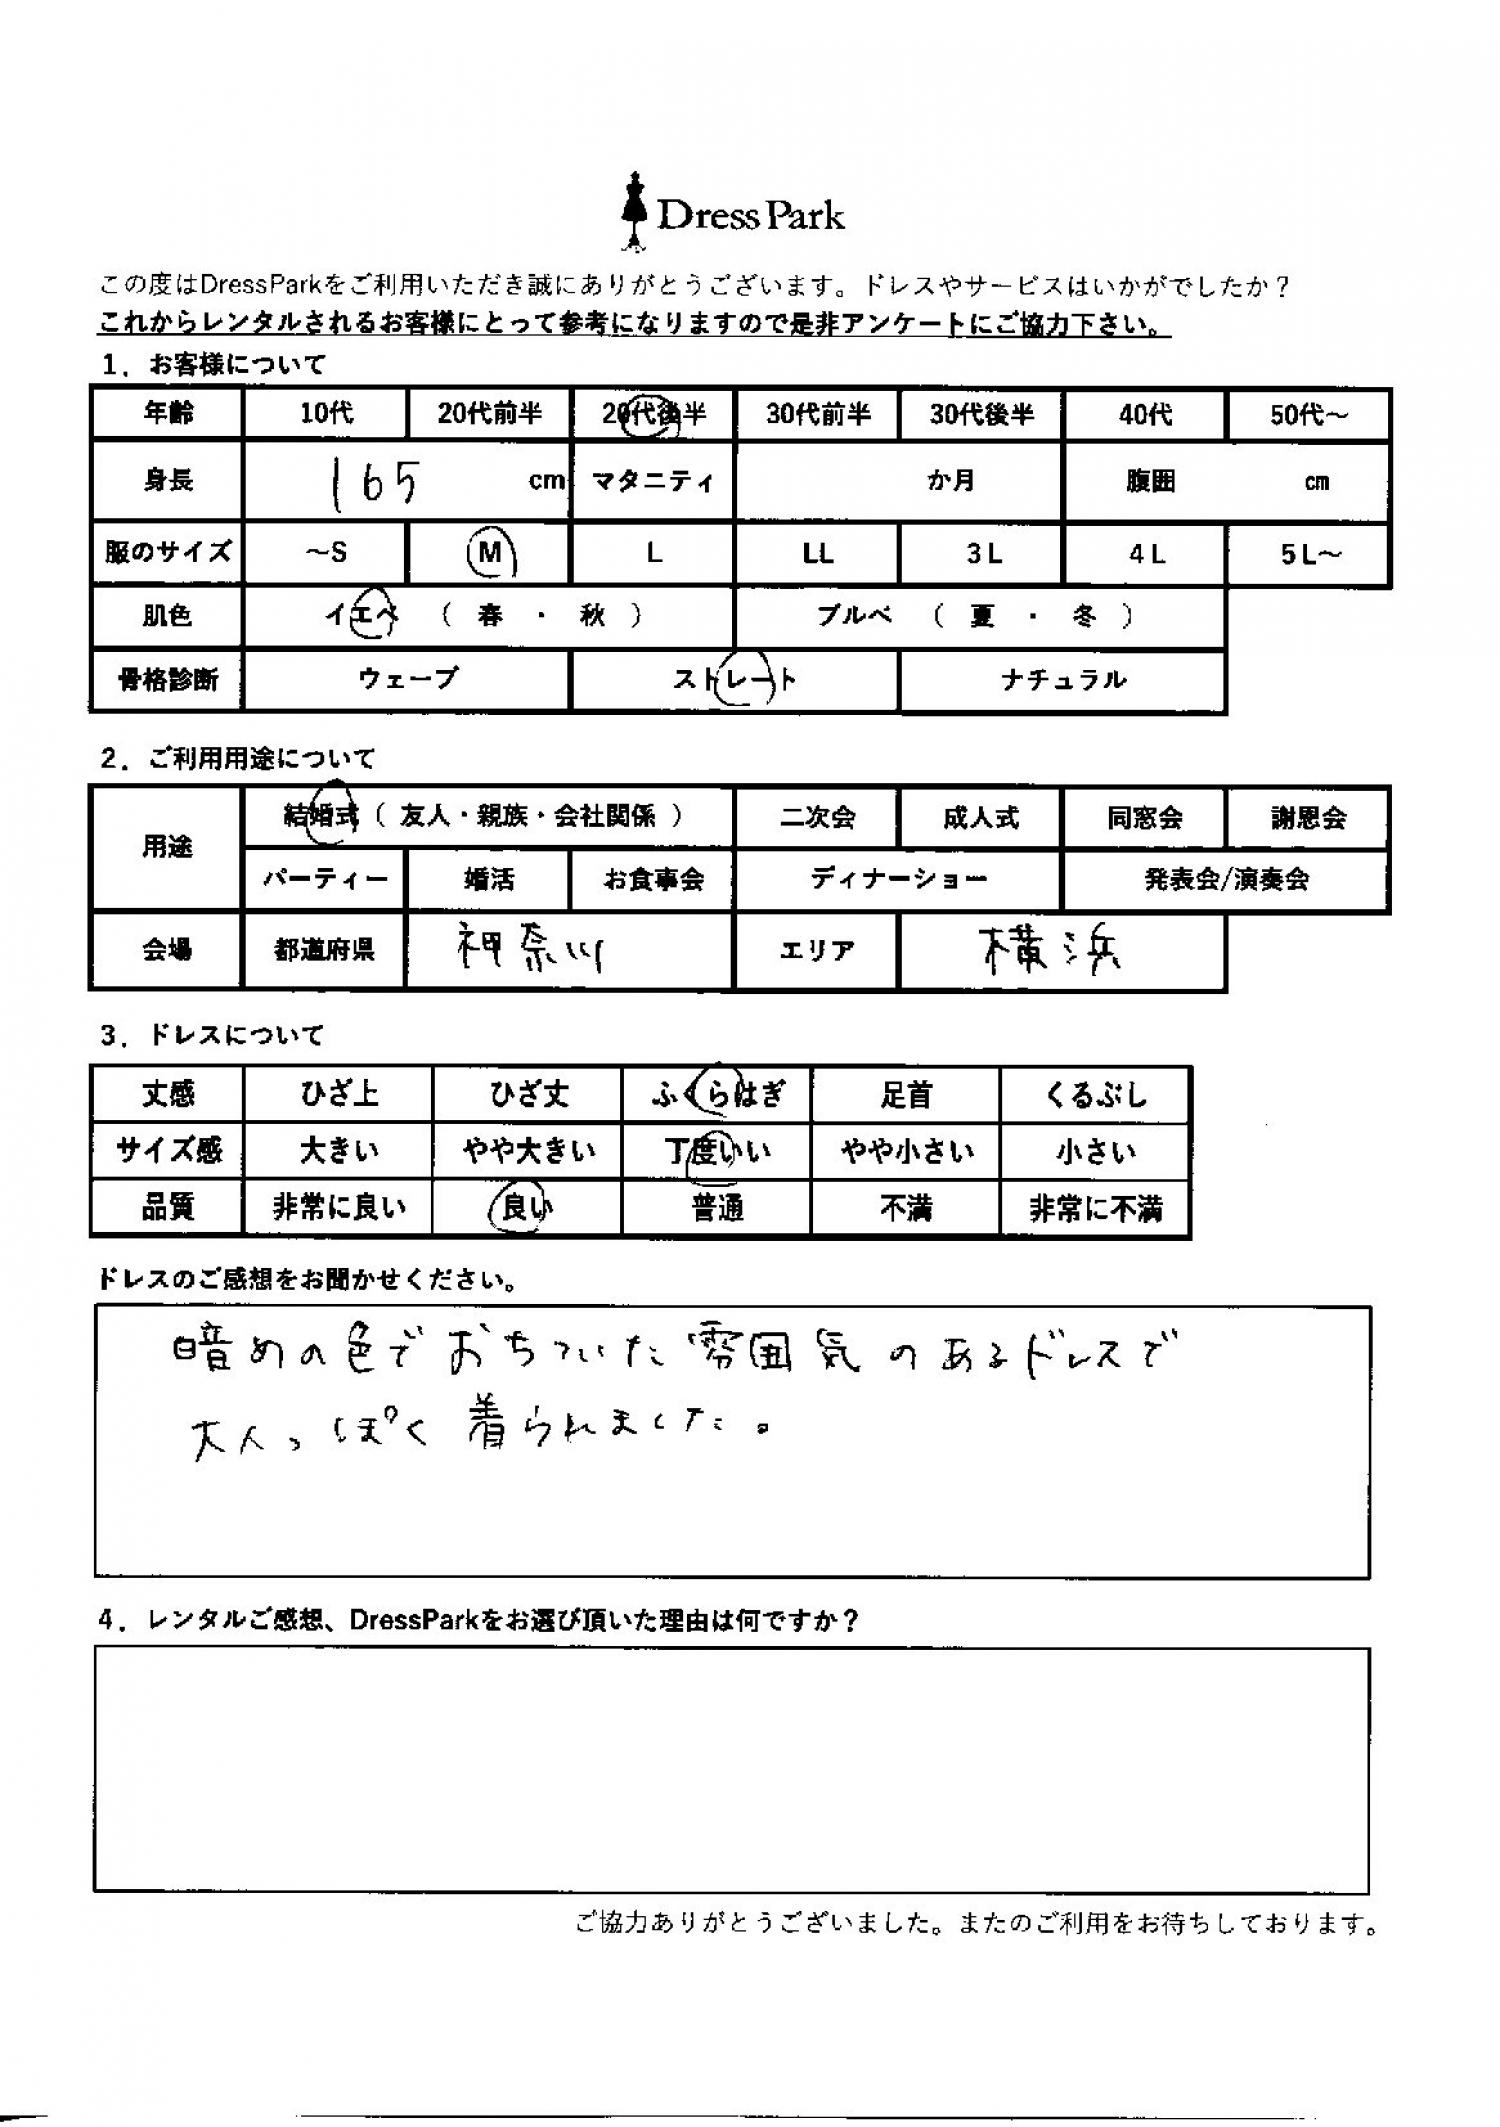 Dress Park
この度はDressParkをご利用いただき誠にありがとうございます。ドレスやサービスはいかがでしたか？
これからレンタルされるお客様にとって参考になりますので是非アンケートにご協力下さい。
1．お客様について
年齢 10代 20代前半 20代後半 30代前半 30代後半 40代 50代～
身長 165 cm マタニティ か月 腹囲 cm
服のサイズ ～S M L LL 3L 4L 5L～
肌色 イエベ （ 春 ・ 秋 ） ブルベ （ 夏 ・ 冬 ）
骨格診断 ウェーブ ストレート ナチュラル
2．ご利用用途について
用途 結婚式（ 友人・親族・会社関係 ） 二次会 成人式 同窓会 謝恩会
パーティー 婚活 お食事会 ディナーショー 発表会/演奏会
会場 都道府県 神奈川 エリア 横浜
3．ドレスについて
丈感 ひざ上 ひざ丈 ふくらはぎ 足首 くるぶし
サイズ感 大きい やや大きい 丁度いい やや小さい 小さい
品質 非常に良い 良い 普通 不満 非常に不満
ドレスのご感想をお聞かせください。
暗めの色でおちついた雰囲気のあるドレスで
大人っぽく着られました。
4．レンタルご感想、DressParkをお選び頂いた理由は何ですか？
ご協力ありがとうございました。またのご利用をお待ちしております。